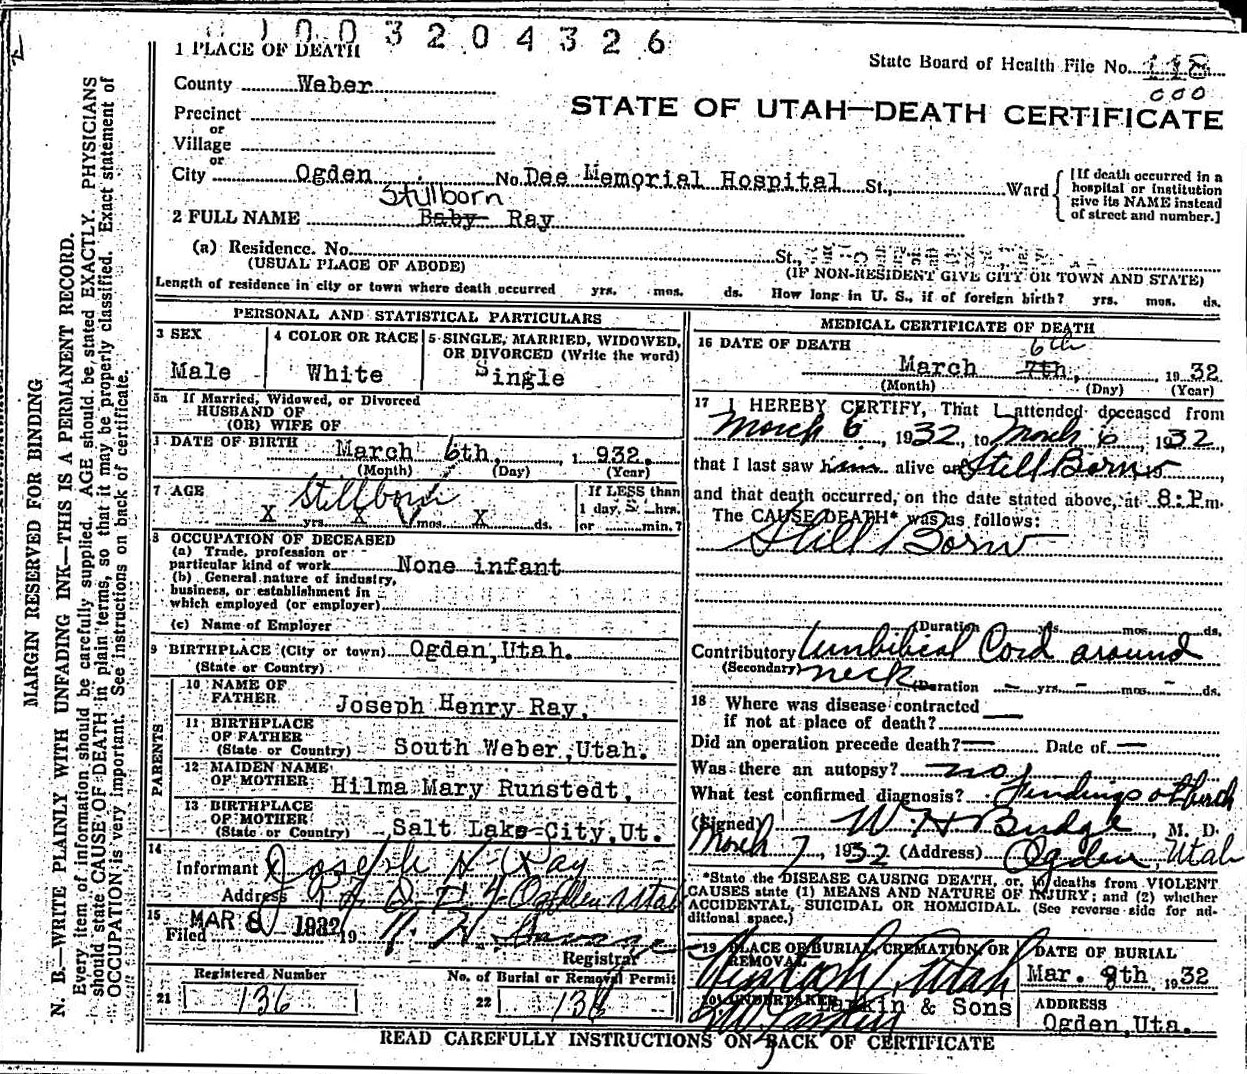 1003204326
1 PLACE OF DEATH
State Board of Health File No. 118
000
County Weber
STATE OF UTAH—DEATH CERTIFICATE
Precinct
or
Village
or
City Ogden No. Dee Memorial Hospital St., Ward
[If death occurred in a
hospital or institution
give its NAME instead
of street and number.]
Stillborn
2 FULL NAME Baby Ray
(a) Residence. No. St.,
(USUAL PLACE OF ABODE) (IF NON-RESIDENT GIVE CITY OR TOWN AND STATE)
Length of residence in city or town where death occurred yrs. mos. ds. How long in U. S., if of foreign birth? yrs. mos. ds.
PERSONAL AND STATISTICAL PARTICULARS
3 SEX
Male
4 COLOR OR RACE
White
5 SINGLE, MARRIED, WIDOWED,
OR DIVORCED (Write the word)
Single
5a If Married, Widowed, or Divorced
HUSBAND OF
(OR) WIFE OF
DATE OF BIRTH
March 6th, 1932.
(Month) (Day) (Year)
7 AGE Stillborn
X yrs. X mos. X ds.
If LESS than
1 day, hrs.
or min.?
8 OCCUPATION OF DECEASED
(a) Trade, profession or
particular kind of work None infant
(b) General nature of industry,
business, or establishment in
which employed (or employer)
(c) Name of Employer
9 BIRTHPLACE (City or town) Ogden, Utah.
(State or Country)
PARENTS
10 NAME OF
FATHER Joseph Henry Ray.
11 BIRTHPLACE
OF FATHER
(State or Country) South Weber, Utah.
12 MAIDEN NAME
OF MOTHER Hilma Mary Runstedt,
13 BIRTHPLACE
OF MOTHER
(State or Country) Salt Lake City, Ut.
14
Informant Joseph H. Ray
Address R. F. D. 4 Ogden Utah
15
Filed MAR 8 1932 19
Registrar
Registered Number
21 136
No. of Burial or Removal Permit
22 136
MEDICAL CERTIFICATE OF DEATH
16 DATE OF DEATH
6th
March 7th, 1932
(Month) (Day) (Year)
17 I HEREBY CERTIFY, That I attended deceased from
March 6, 1932, to March 6, 1932,
that I last saw him alive on Still Born
and that death occurred, on the date stated above, at 8:P m.
The CAUSE DEATH* was as follows:
Still Born
(Duration yrs. mos. ds.
Contributory Umbilical Cord around
(Secondary) neck (Duration – yrs. – mos. – ds.
18 Where was disease contracted
if not at place of death? —
Did an operation precede death? — Date of —
Was there an autopsy? no
What test confirmed diagnosis? Findings at birth
(Signed) W. H. Budge, M. D.
March 7, 1932 (Address) Ogden, Utah
*State the DISEASE CAUSING DEATH, or, in deaths from VIOLENT
CAUSES state (1) MEANS AND NATURE OF INJURY; and (2) whether
ACCIDENTAL, SUICIDAL OR HOMICIDAL. (See reverse side for ad-
ditional space.)
19 PLACE OF BURIAL, CREMATION, OR
REMOVAL
Utah
DATE OF BURIAL
Mar. 8th, 1932
20 UNDERTAKER Larkin & Sons
ADDRESS
Ogden, Uta.
READ CAREFULLY INSTRUCTIONS ON BACK OF CERTIFICATE
MARGIN RESERVED FOR BINDING
N. B.—WRITE PLAINLY WITH UNFADING INK—THIS IS A PERMANENT RECORD.
Every item of information should be carefully supplied. AGE should be stated EXACTLY. PHYSICIANS
should state CAUSE OF DEATH in plain terms, so that it may be properly classified. Exact statement of
OCCUPATION is very important. See instructions on back of certificate.